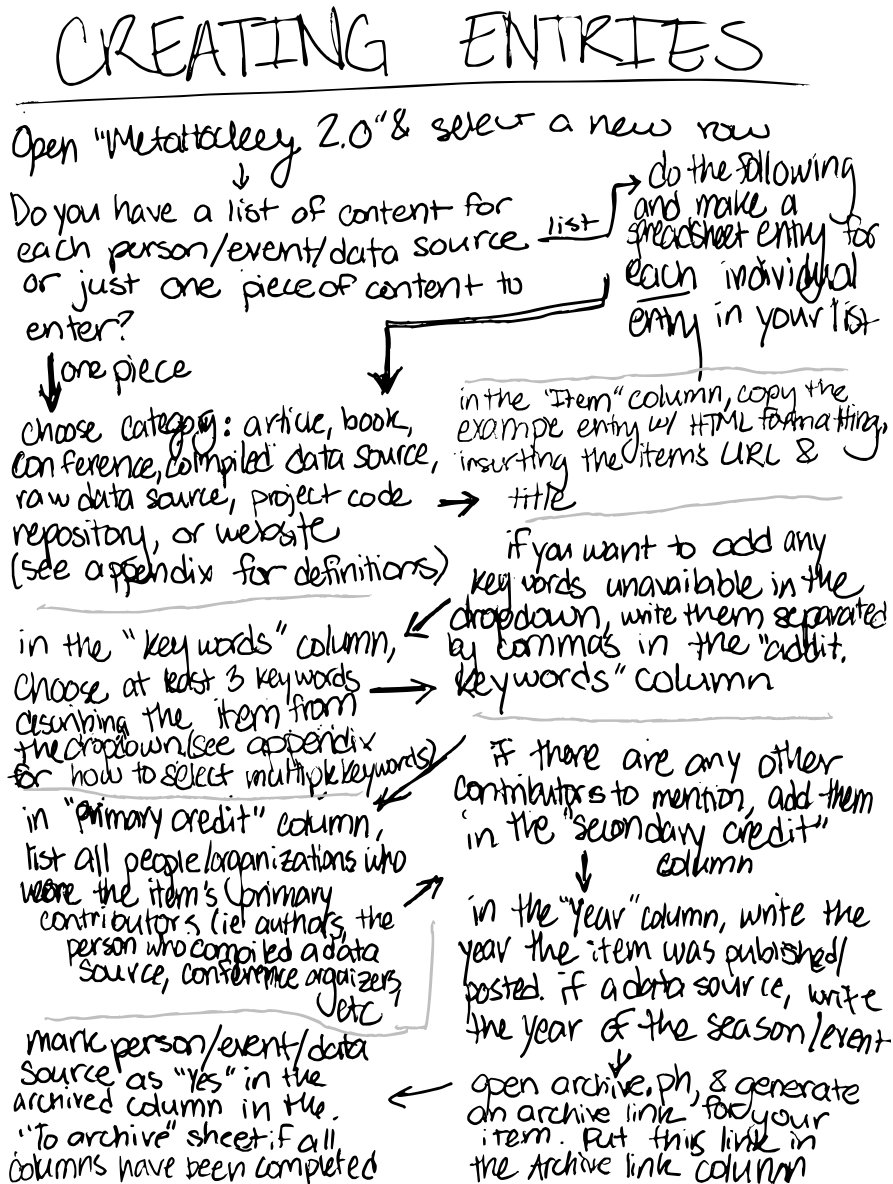 CREATING ENTRIES
Open "Metahockey 2.0" & select a new row
Do you have a list of content for
each person/event/data source
or just one piece of content to
enter?
list
do the following
and make a
spreadsheet entry for
each individual
entry in your list
one piece
choose category: article, book,
conference, compiled data source,
raw data source, project code
repository, or website
(see appendix for definitions)
in the "Item" column, copy the
example entry w/ HTML formatting,
insurting the item's URL &
title
in the "key words" column,
choose at least 3 keywords
describing the item from
the dropdown (see appendix
for how to select multiple keywords)
if you want to add any
key words unavailable in the
dropdown, write them separated
by commas in the "addit.
keywords" column
in "primary credit" column,
list all people/organizations who
were the item's primary
contributors (ie authors, the
person who compiled a data
source, conference orgaizers,
etc)
if there are any other
contributors to mention, add them
in the "secondary credit"
column
in the "Year" column, write the
year the item was published/
posted. if a data source, write
the year of the season/event
open archive.ph, & generate
an archive link for your
item. Put this link in
the Archive link column
mark person/event/data
source as "Yes" in the
archived column in the.
"To archive" sheet if all
columns have been completed